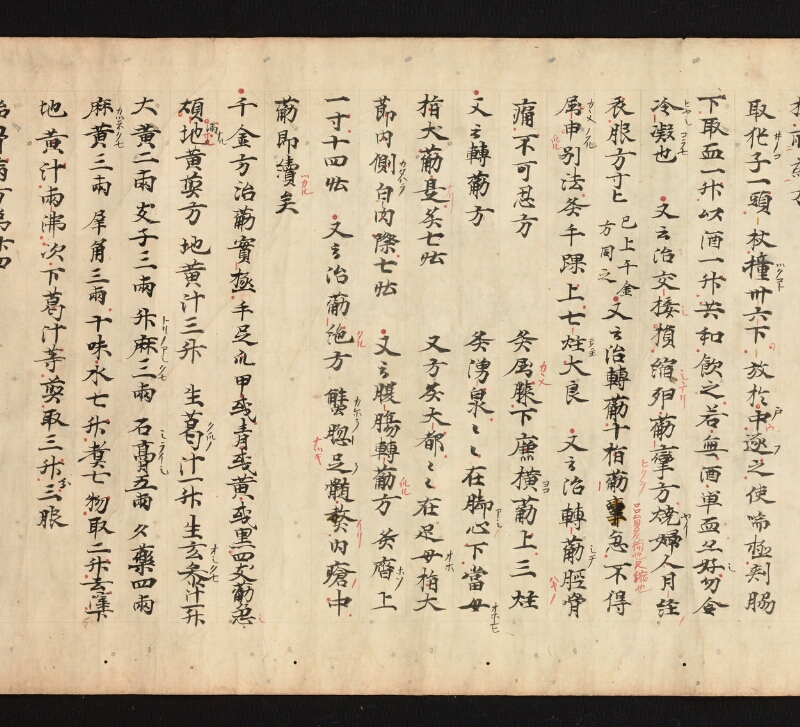 取㹠子一頭一杖撞卅六下放於中逐之使喘極刺脇
下取血一升以酒一升共和飲之若無酒單血亦好勿令
冷凝也 又云治交接損縮卵筋攣方燒婦人月経
衣服方寸匕 已上千金方同之 又云治轉筋十指筋攣急不得
屈申別法灸手踝上七炷大良 又云治轉筋脛骨
痛不可忍方 灸屈膝下廉横筋上三炷
又云轉筋方 灸湧泉々々在脚心下當母
指大筋是灸七壯 又方灸大都々々在足母指大
節内側白肉際七壯 又云腹脹轉筋方灸齊上
一寸十四壯 又云治筋絶方 蟹胞足髓熬内瘡中
筋即續矣
千金方治筋實極手足爪甲或青或黄或黒四支筋急
煩滿地黄煎方 地黄汁三升 生葛汁一升 生玄參汁一升
大黄二兩 支子三兩 升麻三兩 石膏五兩 夕藥四兩
麻黄三兩 犀角三兩 十味水七升煮七物取二升去滓下
地黄汁兩沸次下葛汁等煎取三升三服